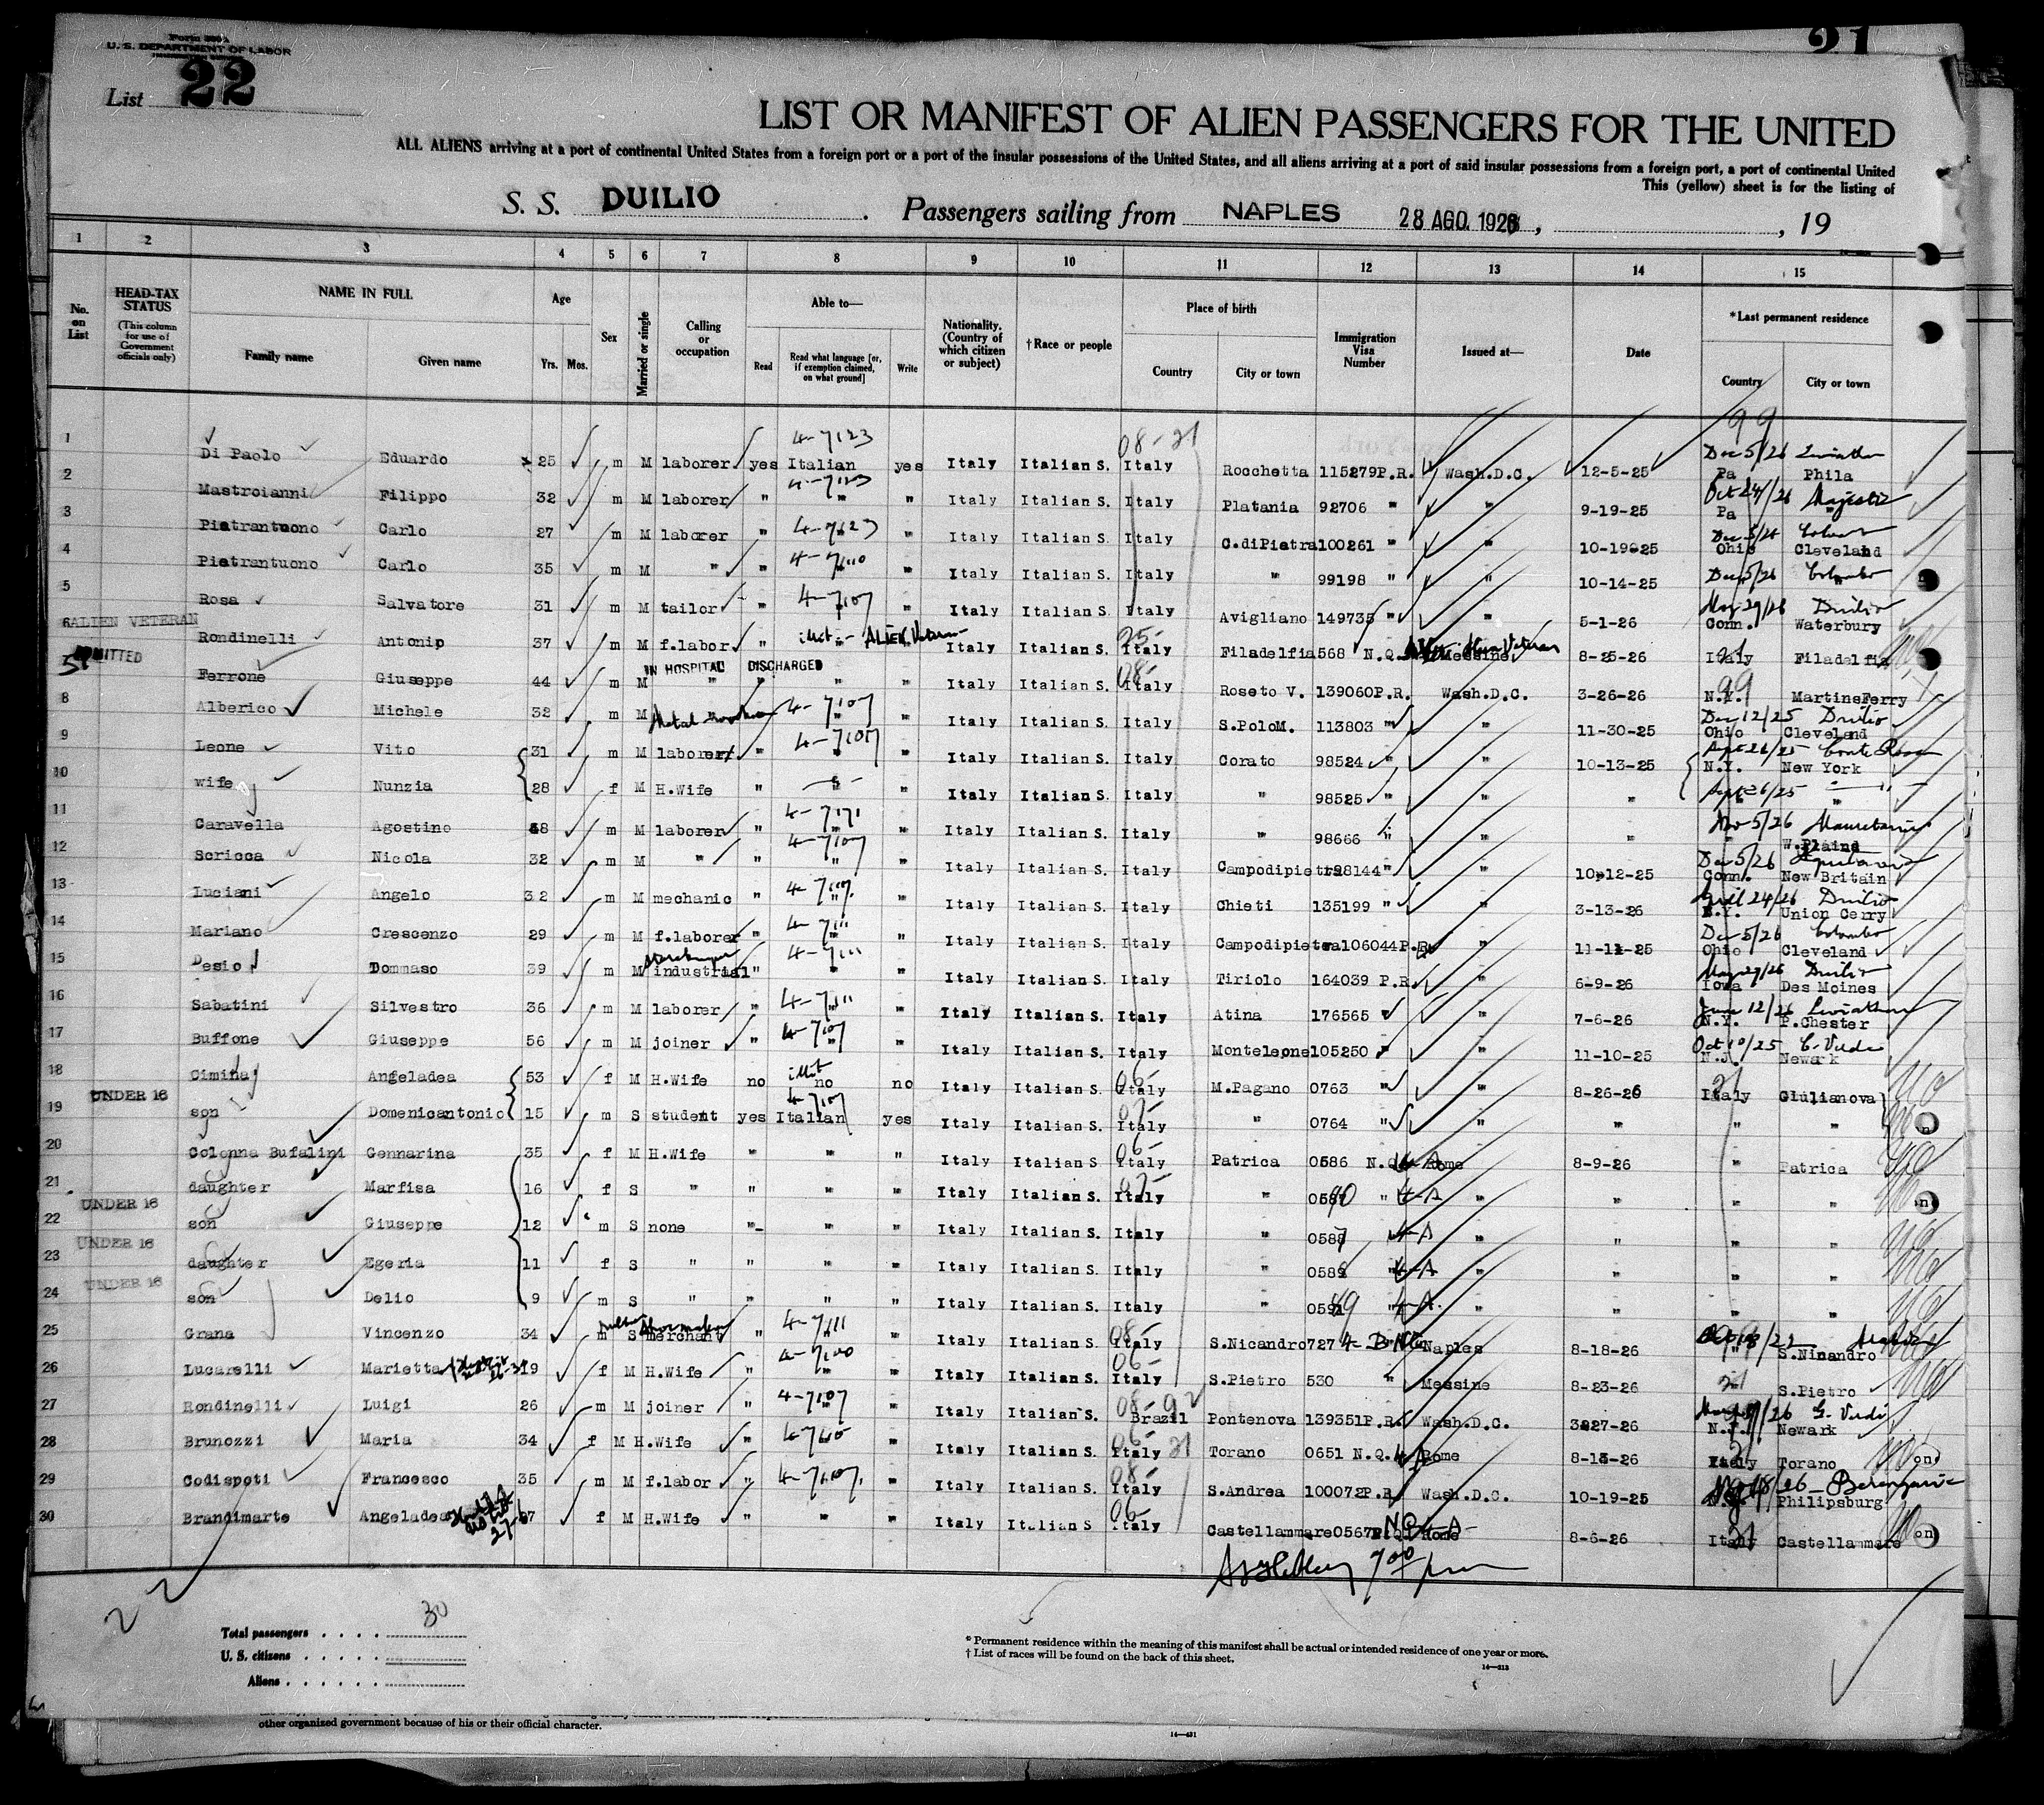 Form 500 A
U. S. DEPARTMENT OF LABOR
List 22
21
LIST OR MANIFEST OF ALIEN PASSENGERS FOR THE UNITED
ALL ALIENS arriving at a port of continental United States from a foreign port or a port of the insular possessions of the United States, and all aliens arriving at a port of said insular possessions from a foreign port, a port of continental United
This (yellow) sheet is for the listing of
S. S. DUILIO . Passengers sailing from NAPLES 28 AGO. 1926 , , 19
1 2 3 4 5 6 7 8 9 10 11 12 13 14 15
No. on List HEAD-TAX STATUS (This column for use of Government officials only) NAME IN FULL Family name Given name Age Yrs. Mos. Sex Married or single Calling or occupation Able to— Read Read what language [or, if exemption claimed, on what ground] Write Nationality. (Country of which citizen or subject) †Race or people Place of birth Country City or town Immigration Visa Number Issued at— Date *Last permanent residence Country City or town
1 Di Paolo Eduardo 25 m M laborer yes 4-7123 Italian yes Italy Italian S. 08-21 Italy Rocchetta 115279P.R. Wash.D.C. 12-5-25 Dec 5/26 Leviathan Pa Phila
2 Mastroianni Filippo 32 m M laborer " " " Italy Italian S. Italy Platania 92706 " " 9-19-25 Oct 24/26 Majestic Pa "
3 Pietrantuono Carlo 27 m M laborer " " " Italy Italian S. Italy C.diPietra 100261 " " 10-19-25 Ohio Cleveland
4 Pietrantuono Carlo 35 m M " " " " Italy Italian S. Italy " 99198 " " 10-14-25 Dec 5/26 Colombo
5 Rosa Salvatore 31 m M tailor " 4-7107 " Italy Italian S. Italy Avigliano 149735 " " 5-1-26 May 29/26 Duilio Conn. Waterbury
6 ALIEN VETERAN Rondinelli Antonip 37 m M f.labor " illit - ALIEN Veteran Italy Italian S. 25- Italy Filadelfia 568 N.Q. Messine 8-25-26 Italy Filadelfia
ADMITTED Ferrone Giuseppe 44 m M IN HOSPITAL DISCHARGED " " " " Italy Italian S. 08- Italy Roseto V. 139060P.R. Wash.D.C. 3-26-26 N.Y. MartinsFerry
8 Alberico Michele 32 m M Metal worker 4-7107 " " Italy Italian S. Italy S.PoloM. 113803 " " 11-30-25 Dec 12/25 Duilio Ohio Cleveland
9 Leone Vito 31 m M laborer " 4-7107 " " Italy Italian S. Italy Corato 98524 " " 10-13-25 Sept 26/25 Conte Rosso N.Y. New York
10 wife Nunzia 28 f M H.Wife " " " Italy Italian S. Italy " 98525 " " " Sept 26/25 " "
11 Caravella Agostino 48 m M laborer " 4-7171 " " Italy Italian S. Italy " 98666 " " " Mauretania W.Plains
12 Scricca Nicola 32 m M " " 4-7107 " " Italy Italian S. Italy Campodipietra 98144 " " 10-12-25 Dec 5/26 Conn. New Britain
13 Luciani Angelo 32 m M mechanic " " " Italy Italian S. Italy Chieti 135199 " " 3-13-26 April 24/26 Duilio N.Y. Union Cerry
14 Mariano Crescenzo 29 m M f.laborer " 4-7111 " " Italy Italian S. Italy Campodipietra 106044P.R. " 11-11-25 Dec 5/26 Colombo Ohio Cleveland
15 Desio Dommaso 39 m M industrial " 4-7111 " " Italy Italian S. Italy Tiriolo 164039 P.R. " 6-9-26 May 29/26 Duilio Iowa Des Moines
16 Sabatini Silvestro 36 m M laborer " 4-7111 " " Italy Italian S. Italy Atina 176565 " " 7-6-26 June 12/26 Leviathan N.Y. P.Chester
17 Buffone Giuseppe 56 m M joiner " 4-7107 " " Italy Italian S. Italy Monteleone 105250 " " 11-10-25 Oct 10/25 G. Verdi N.J. Newark
18 Cimina Angeladea 53 f M H.Wife no illit no no Italy Italian S. 06- Italy M.Pagano 0763 " " 8-26-26 Italy Giulianova
19 UNDER 16 son Domenicantonio 15 m S student yes 4-7107 Italian yes Italy Italian S. 07- Italy " 0764 " " " " "
20 Colonna Bufalini Gennarina 35 f M H.Wife " " " Italy Italian S 06- Italy Patrica 0586 N.Q. 4-A Rome 8-9-26 " Patrica
21 daughter Marfisa 16 f S " " " " Italy Italian S. 07- Italy " " 4-A " " " "
22 UNDER 16 son Giuseppe 12 m S none " " " Italy Italian S. Italy " 4-A " " " "
23 UNDER 16 daughter Egeria 11 f S " " " " Italy Italian S. Italy " 4-A " " " "
24 UNDER 16 son Delio 9 m S " " " " Italy Italian S. Italy " 4-A " " " "
25 Grana Vincenzo 34 m S merchant " 4-7111 " " Italy Italian S. 08- Italy S.Nicandro 727 Naples 8-18-26 " S.Ninandro
26 Lucarelli Marietta 19 f M H.Wife " 4-7100 " " Italy Italian S. 06- Italy S.Pietro 530 " Messine 8-23-26 S.Pietro
27 Rondinelli Luigi 26 m M joiner " 4-7107 " " Italy Italian S. 08-92 Brazil Pontenova 139351P.R. Wash.D.C. 3-27-26 G. Verdi N.J. Newark
28 Brunozzi Maria 34 f M H.Wife " " Italy Italian S. 06- Italy 21 Torano 0651 N.Q. Rome 8-13-26 Italy Torano
29 Codispoti Francesco 35 m M f.labor " 4-7107 " Italy Italian S. 08- Italy S.Andrea 100072P.R. Wash.D.C. 10-19-25 Berengaria Philipsburg
30 Brandimarte Angeladea f M H.Wife " " " Italy Italian S 06- Italy Castellammare 0567 NQ 4-A Rome 8-6-26 Italy Castellammare
Total passengers . . . . 30
U. S. citizens . . . . .
Aliens . . . . . .
* Permanent residence within the meaning of this manifest shall be actual or intended residence of one year or more.
† List of races will be found on the back of this sheet.
14—313
other organized government because of his or their official character.
14—431